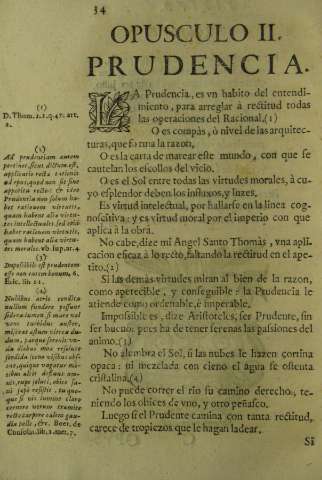 34
OPUSCULO II.
PRUDENCIA.
LA Prudencia, es vn habito del entendi-
miento, para arreglar à rectitud todas
las operaciones del Racional.(1)
O es compàs, ò nivel de las arquitec-
turas, que forma la razon,
O es la carta de marear este mundo, con que se
cautelan los escollos del vicio.
O es el Sol entre todas las virtudes morales, à cu-
yo esplendor deben los influxos, y luzes.
Es virtud intelectual, por hallarse en la linea cog-
noscitiva; y es virtud moral por el imperio con que
aplica à la obra.
No cabe, dize mi Angel Santo Thomàs, vna apli-
cacion eficaz à lo recto, faltando la rectitud en el ape-
tito.(2)
Si las demàs virtudes miran al bien de la razon,
como aperecible, y conseguible: la Prudencia le
atiende como ordenable, è imperable.
Impossible es, dize Aristoteles, ser Prudente, sin
ser bueno: pues ha de tener serenas las passiones del
animo.(3)
No alumbra el Sol, si las nubes le hazen cortina
opaca: ni mezclada con cieno el agua se ostenta
cristalina.(4)
No puede correr el rio su camino derecho, te-
niendo los obices de vno, y otro peñasco.
Luego si el Prudente camina con tanta rectitud,
carece de tropiezos que le hagan ladear.
Si
(1)
D. Thom. 2. 2. q. 47. art.
2.
(2)
Ad prudentiam autem
pertinet, sicut dictum est,
applicatio recta rationis
ad opus, quod non fit sine
appetitu recto: & ideò
Prudentia non solum ha-
bet rationem virtutis,
quam habent aliæ virtu-
tes intellectuales, sed etiã
habet rationem virtutis,
quam habent aliæ virtu-
tes morales. vb. sup. ar. 4.
(3)
Impossibile est prudentem
esse non existentem bonum. 6.
(4)
Nubibus atris condita
nullum fundere possunt
sidera lumen, si mare vol
vens turbidus auster,
misceat æstum vitrea du-
dum, parque serenis vn-
da diebus mox resoluto
sordida cœno visibus obs-
tat, quique vagatur mõ-
tibus altis defluus am-
nis, sæpè resistit, rupe
Boet. de